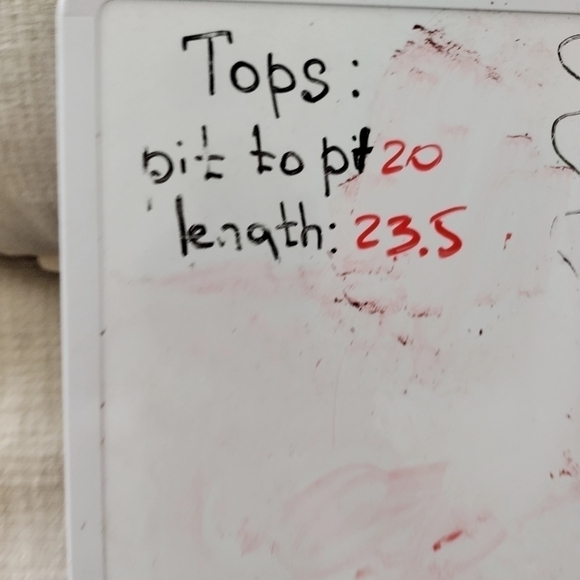 Tops:
pit to pit 20
length: 23.5